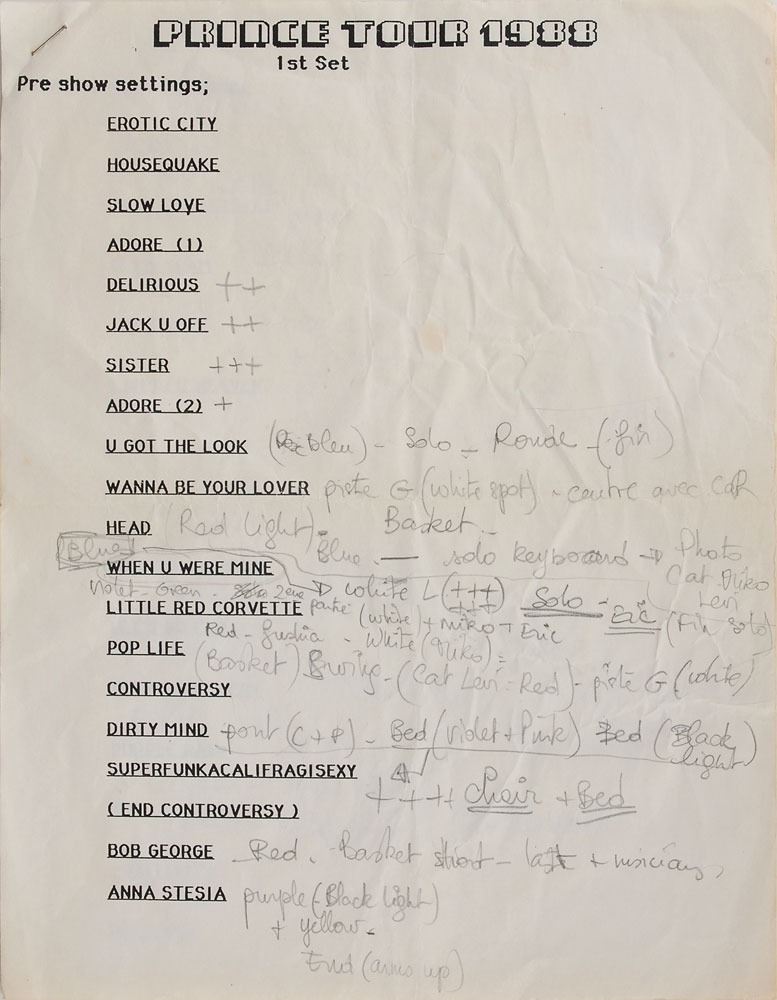 PRINCE TOUR 1988
1st Set
Pre show settings;
EROTIC CITY
HOUSEQUAKE
SLOW LOVE
ADORE (1)
DELIRIOUS ++
JACK U OFF ++
SISTER +++
ADORE (2) +
U GOT THE LOOK (bleu) - Solo - Ronde - (fin)
WANNA BE YOUR LOVER piste G (white spot) - centre avec Cat
HEAD (Red light). Basket -
(Blue) Blue. — solo keyboard → Photo
WHEN U WERE MINE Cat Miko
Violet - Green - 2ème → white L (+++) Solo - Eric Levi
LITTLE RED CORVETTE partie (white) + Miko + Eric (Fin solo)
Red - fushia - White (Miko) =
POP LIFE (Basket) Swing - (Cat Levi - Red) - piste G (white)
CONTROVERSY
DIRTY MIND pont (C+P) - Bed (violet + Pink) Bed (Black light)
SUPERFUNKACALIFRAGISEXY
+++ chair + Bed
( END CONTROVERSY )
BOB GEORGE Red. Basket short - + musicians
ANNA STESIA purple (Black light)
+ yellow -
End (arms up)